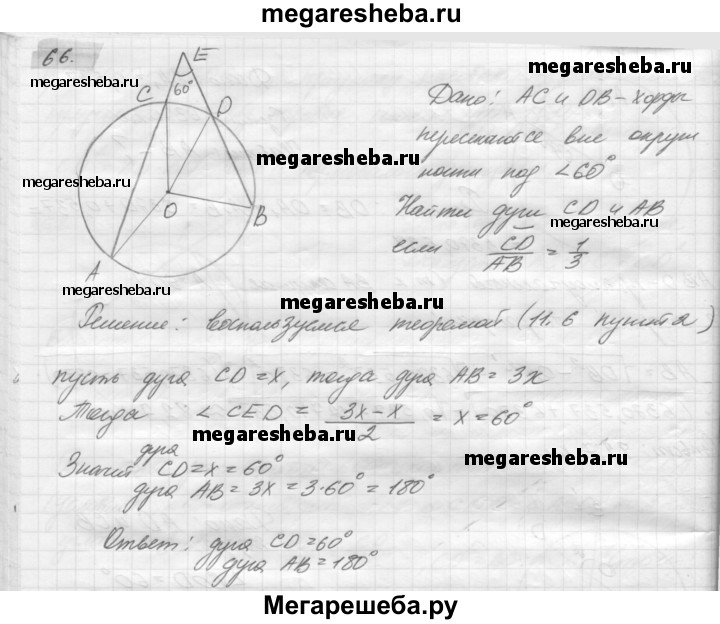 megaresheba.ru
66.
E
60°
C
D
O
B
A
megaresheba.ru
megaresheba.ru
megaresheba.ru
megaresheba.ru
Дано: AC и DB – хорды
пересекаются вне окруж
ности под ∠60°
Найти дуги CD и AB
если CD/AB = 1/3
megaresheba.ru
megaresheba.ru
megaresheba.ru
Решение: воспользуемся теоремой (11.6 пункта)
пусть дуга CD = x, тогда дуга AB = 3x
Тогда ∠CED = (3x – x)/2 = x = 60°
megaresheba.ru
megaresheba.ru
Значит дуга CD = x = 60°
дуга AB = 3x = 3·60° = 180°
megaresheba.ru
Ответ: дуга CD = 60°
дуга AB = 180°
megaresheba.ru
Мегарешеба.ру